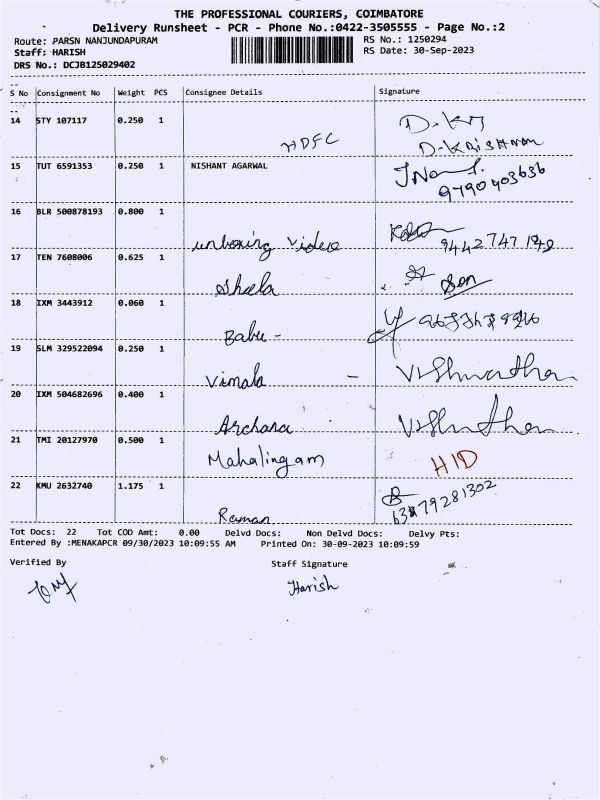 THE PROFESSIONAL COURIERS, COIMBATORE
Delivery Runsheet - PCR - Phone No.:0422-3505555 - Page No.:2
Route: PARSN NANJUNDAPURAM RS No.: 1250294
Staff: HARISH RS Date: 30-Sep-2023
DRS No.: DCJB125029402
S No Consignment No Weight PCS Consignee Details Signature
14 STY 107117 0.250 1 HDFC D. KRISHNAN
15 TUT 6591353 0.250 1 NISHANT AGARWAL 9790403636
16 BLR 500878193 0.800 1 unboxing video 9442747149
17 TEN 7608006 0.625 1 Sheela Son
18 IXM 3443912 0.060 1 Babu -
19 SLM 329522094 0.250 1 Vimala -
20 IXM 504682696 0.400 1 Archana
21 TMI 20127970 0.500 1 Mahalingam HID
22 KMU 2632740 1.175 1 Raman 6379281302
Tot Docs: 22 Tot COD Amt: 0.00 Delvd Docs: Non Delvd Docs: Delvy Pts:
Entered By :MENAKAPCR 09/30/2023 10:09:55 AM Printed On: 30-09-2023 10:09:59
Verified By Staff Signature
Harish